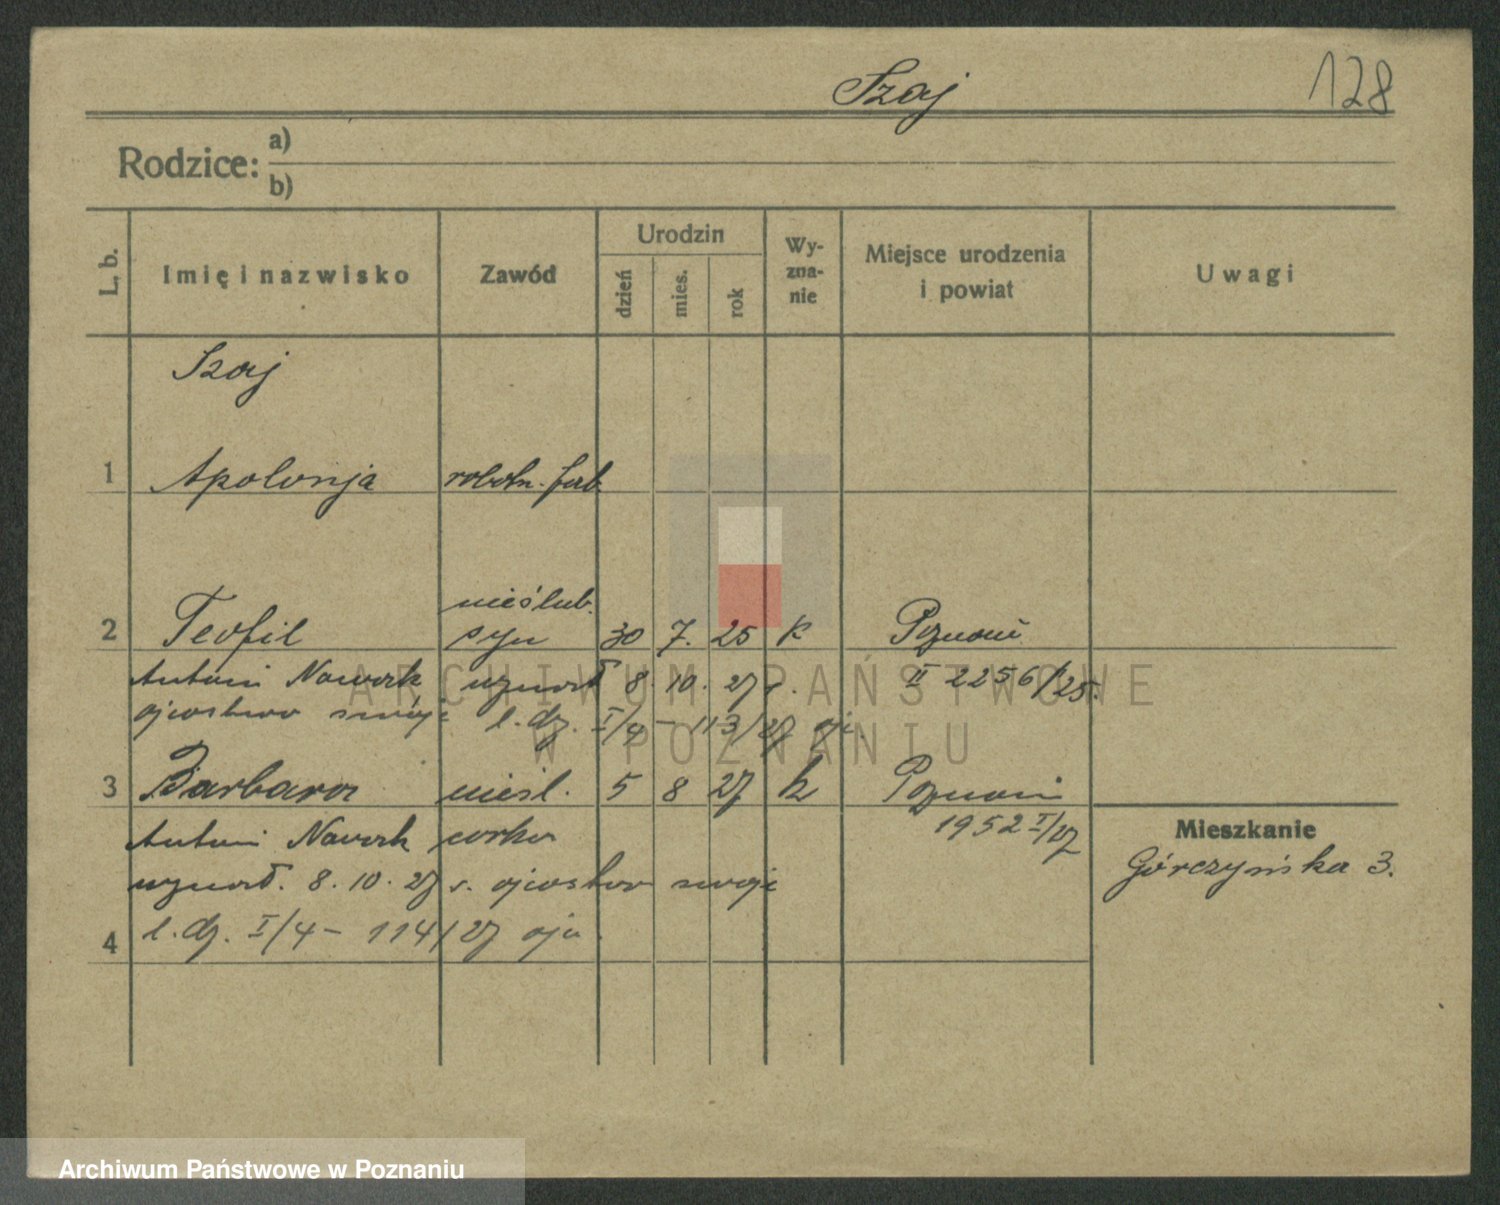 Szaj 128
Rodzice: a)
b)
L. b. Imię i nazwisko Zawód Urodzin dzień mies. rok Wy-zna-nie Miejsce urodzenia i powiat Uwagi
Szaj
1 Apolonja robotn. fab.
nieślub.
2 Teofil syn 30 7. 25 k Poznań
Antoni Nowak uznał 8. 10. 27 r. II 2256/25.
ojcostwo swoje l. dz. I/4 - 113/27
3 Barbara nieśl. 5 8 27 k Poznań
Antoni Nowak corka 1952 I/27
Mieszkanie
Górczyńska 3.
uznał. 8. 10. 27 r. ojcostwo swoje
4 l. dz. I/4 - 114/27
ARCHIWUM PAŃSTWOWE
W POZNANIU
Archiwum Państwowe w Poznaniu